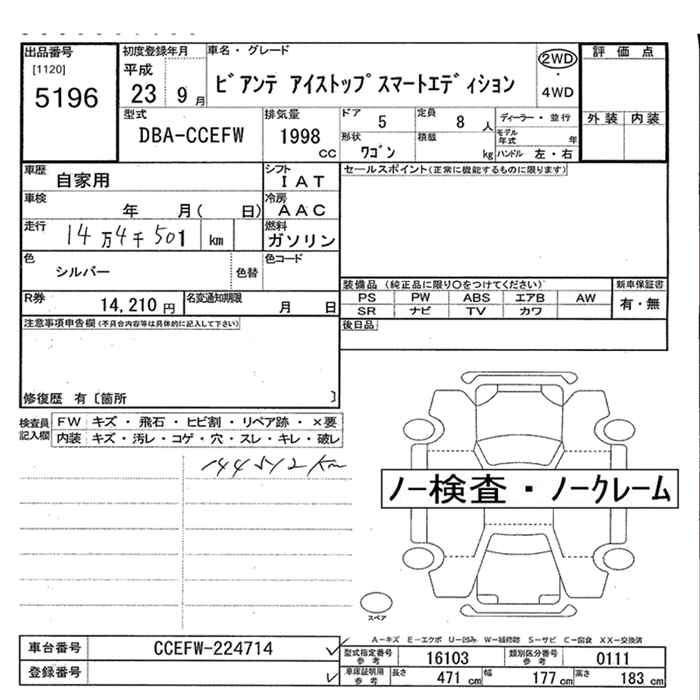 出品番号
[1120]
5196
初度登録年月
平成
23 9月
車名・グレード
ビアンテ アイストップスマートエディション
2WD
・
4WD
評価点
外装 内装
型式
DBA-CCEFW
排気量
1998
cc
ドア
5
定員
8 人
ディーラー・並行
形状
ワゴン
積載
kg
モデル年式 年
ハンドル 左・右
車歴
自家用
シフト
IAT
セールスポイント(正常に機能するものに限ります)
車検
年 月( 日)
冷房
AAC
走行
14万4千501 km
燃料
ガソリン
色
シルバー
色替
色コード
R券
14,210 円
名変通知期限
月 日
装備品 (純正品に限り〇をつけてください)
新車保証書
PS PW ABS エアB AW
SR ナビ TV カワ
有・無
後日品
注意事項申告欄(不具合内容等は具体的に記入して下さい)
修復歴 有〔箇所 〕
検査員記入欄
FW キズ・飛石・ヒビ割・リペア跡・×要
内装 キズ・汚レ・コゲ・穴・スレ・キレ・破レ
144512km
ノー検査・ノークレーム
スペア
A-キズ E-エクボ U-凹み W-補修跡 S-サビ C-腐食 XX-交換済
車台番号 CCEFW-224714
型式指定番号
参考
16103
類別区分番号
参考
0111
登録番号
車庫証明用
参考
長さ 471 cm 幅 177 cm 高さ 183 cm